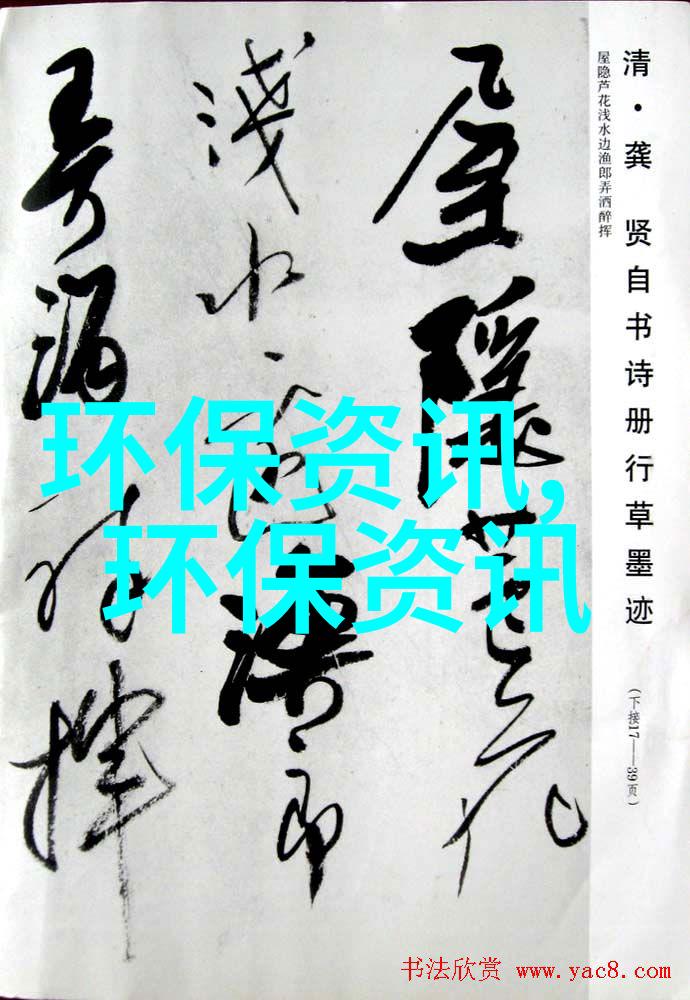 清·龚 贤自书诗册行草墨迹
(下接17——39页)
屋隐芦花浅水边渔郎弄洒醉挥
屋隱蘆花
淺水邊漁郎
弄酒醉揮
环保资讯,
环保资讯
书法欣赏 www.yac8.com